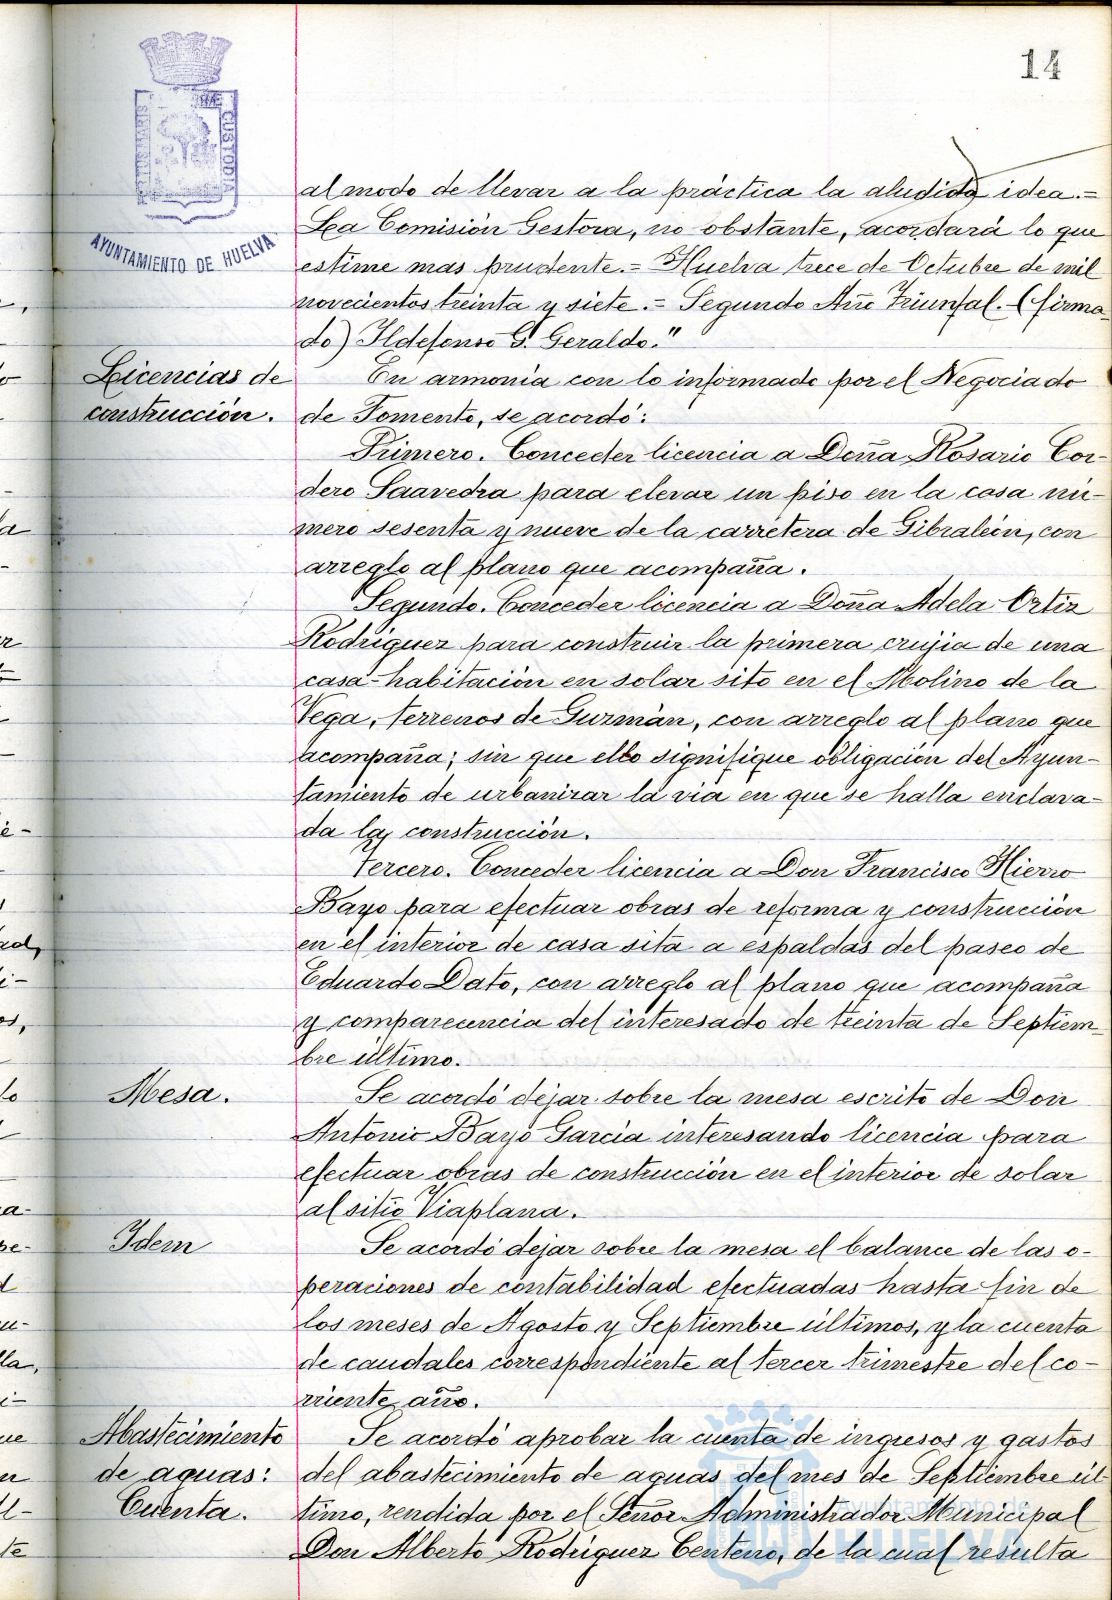 14
AYUNTAMIENTO DE HUELVA
CUSTODIA
al modo de llevar a la práctica la aludida idea.=
La Comisión Gestora, no obstante, acordará lo que
estime mas prudente.= Huelva trece de Octubre de mil
novecientos treinta y siete.= Segundo Año Triunfal. (firma-
do) Ildefonso G. Geraldo."
Licencias de
construcción.
En armonía con lo informado por el Negociado
de Fomento, se acordó:
Primero. Conceder licencia a Doña Rosario Cor-
dero Saavedra para elevar un piso en la casa nú-
mero sesenta y nueve de la carretera de Gibraleón, con
arreglo al plano que acompaña.
Segundo. Conceder licencia a Doña Adela Ortiz
Rodríguez para construir la primera crujia de una
casa-habitación en solar sito en el Molino de la
Vega, terrenos de Guzmán, con arreglo al plano que
acompaña; sin que ello signifique obligación del Ayun-
tamiento de urbanizar la via en que se halla enclava-
da la construcción.
Tercero. Conceder licencia a Don Francisco Hierro
Bayo para efectuar obras de reforma y construcción
en el interior de casa sita a espaldas del paseo de
Eduardo Dato, con arreglo al plano que acompaña
y comparecencia del interesado de treinta de Septiem-
bre último.
Mesa.
Se acordó dejar sobre la mesa escrito de Don
Antonio Bayo García interesando licencia para
efectuar obras de construcción en el interior de solar
al sitio Viaplana.
Idem
Se acordó dejar sobre la mesa el balance de las o-
peraciones de contabilidad efectuadas hasta fin de
los meses de Agosto y Septiembre últimos, y la cuenta
de caudales correspondiente al tercer trimestre del co-
rriente año.
Abastecimiento
de aguas:
Cuenta.
Se acordó aprobar la cuenta de ingresos y gastos
del abastecimiento de aguas del mes de Septiembre úl-
timo, rendida por el Señor Administrador Municipal
Don Alberto Rodríguez Centeno, de la cual resulta
Ayuntamiento de
HUELVA